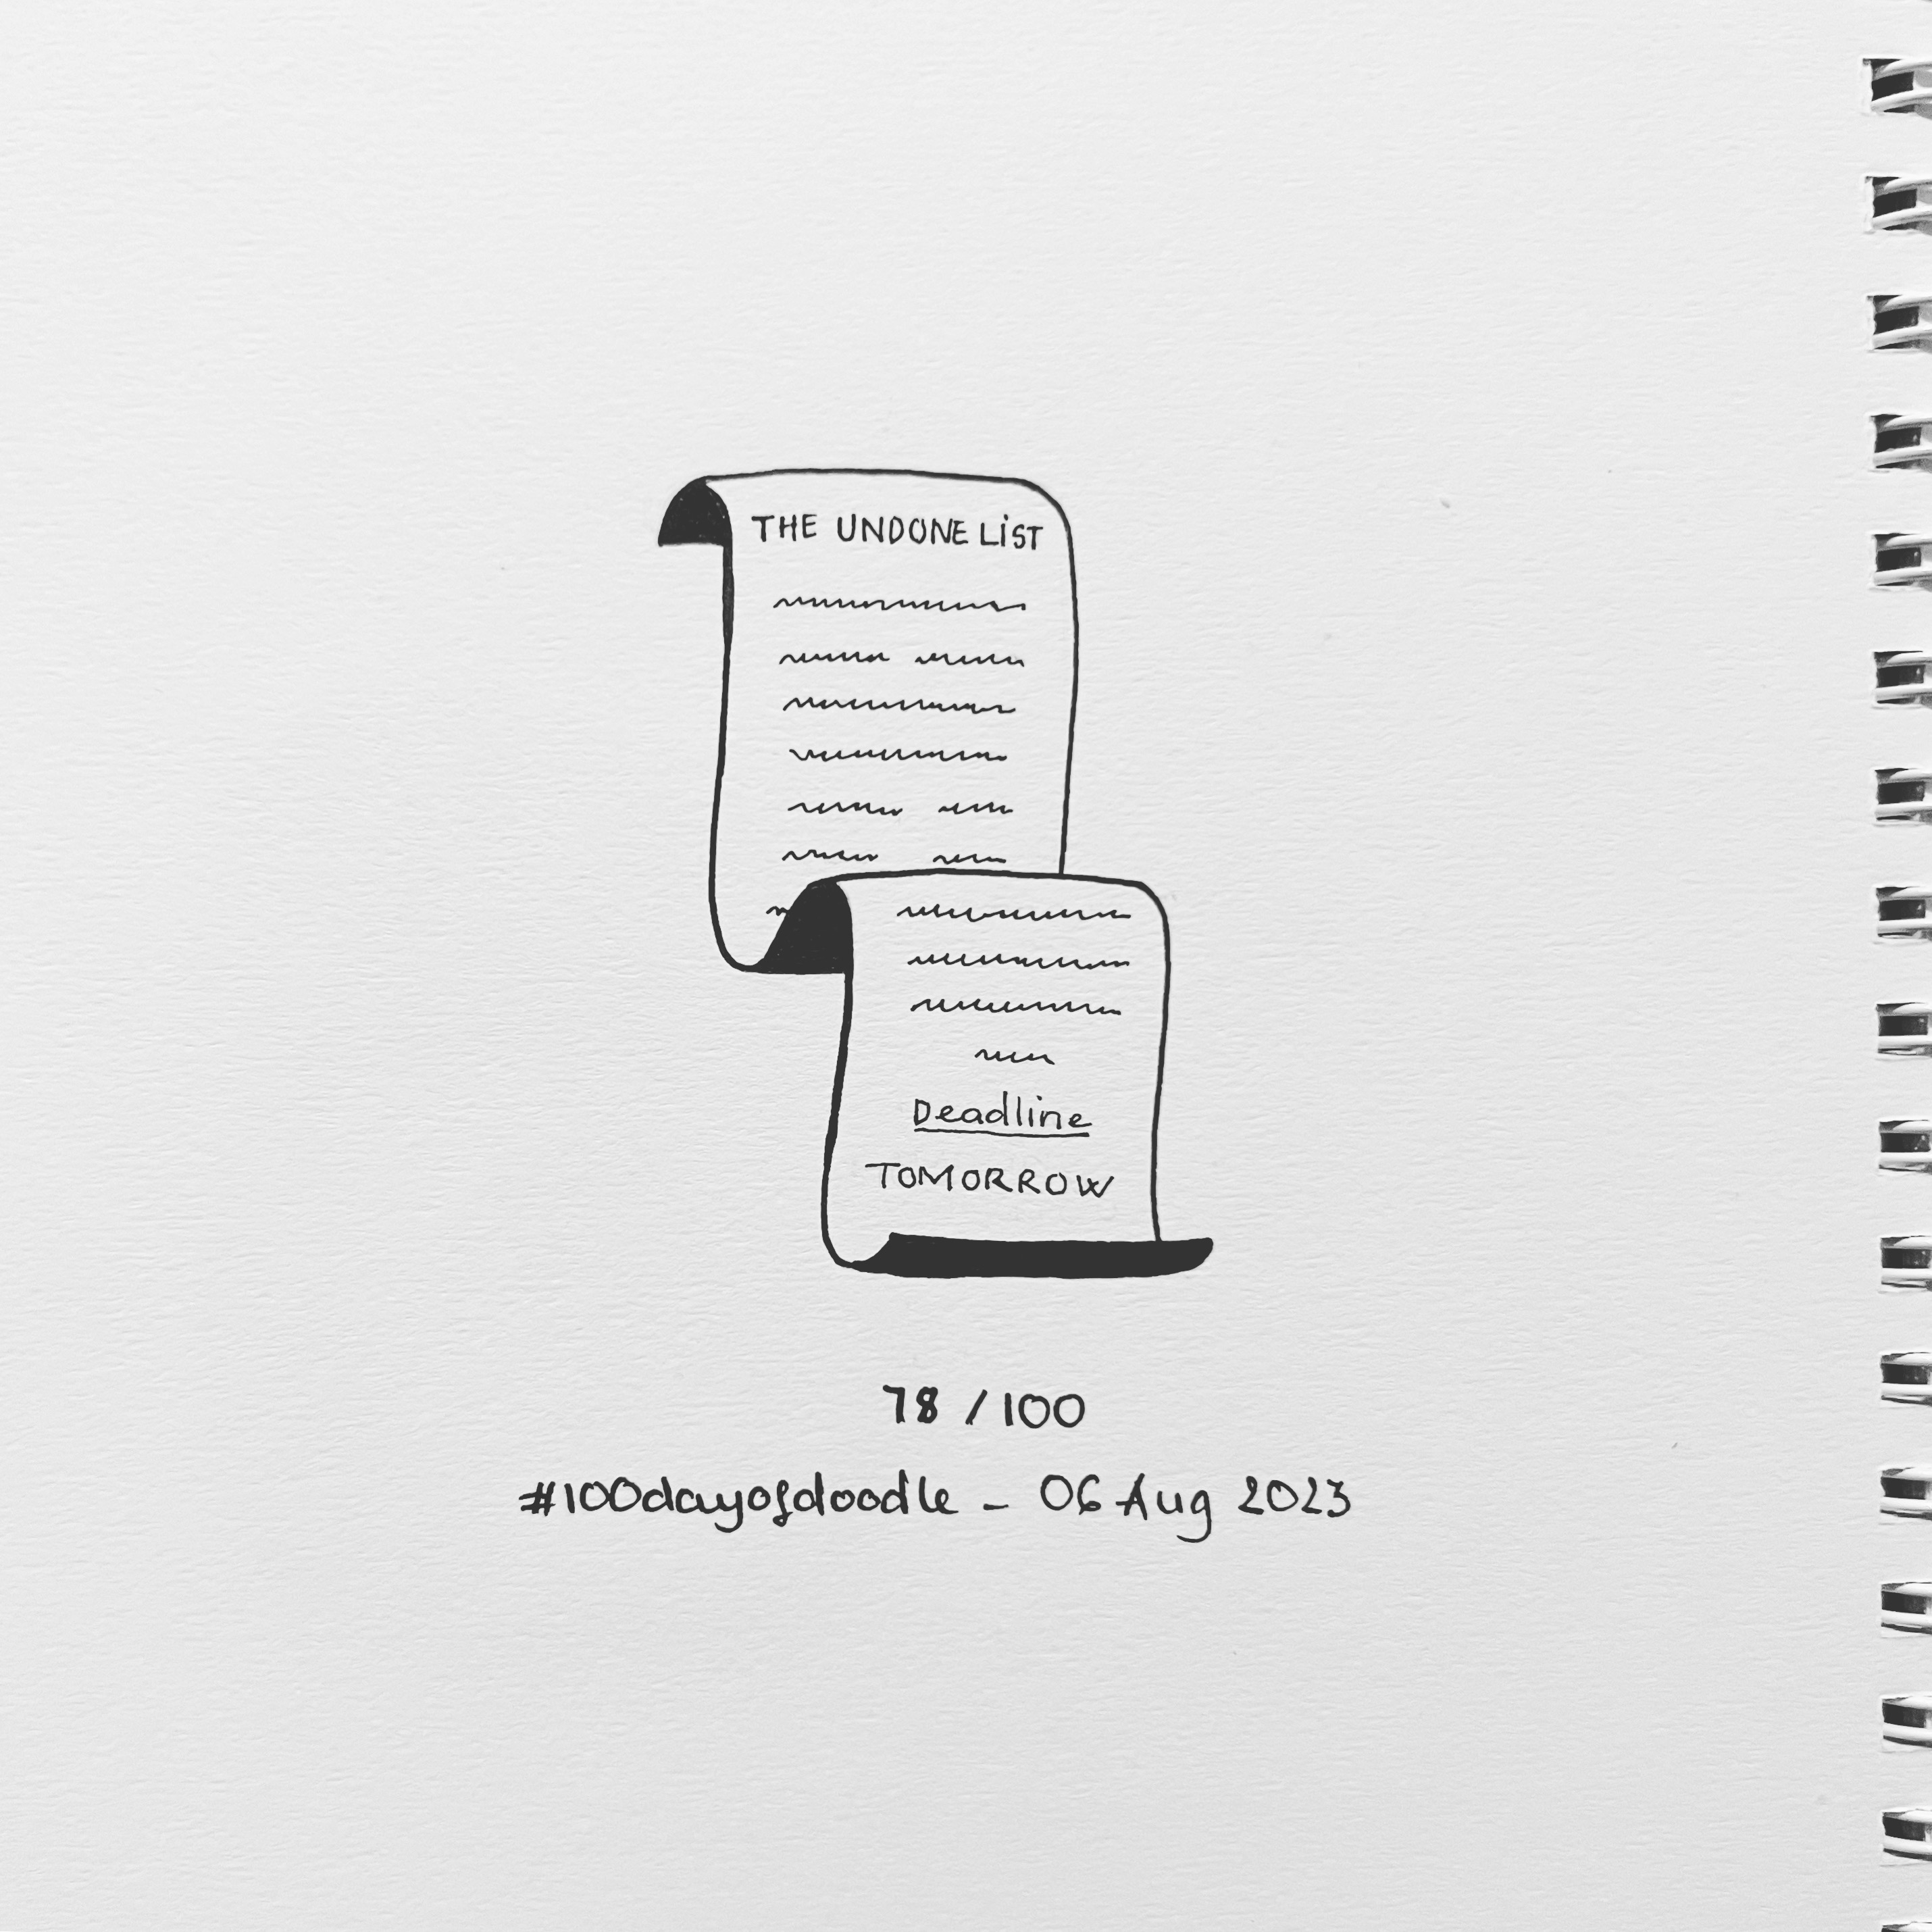 THE UNDONE LIST
Deadline
TOMORROW
78 / 100
#100dayofdoodle - 06 Aug 2023